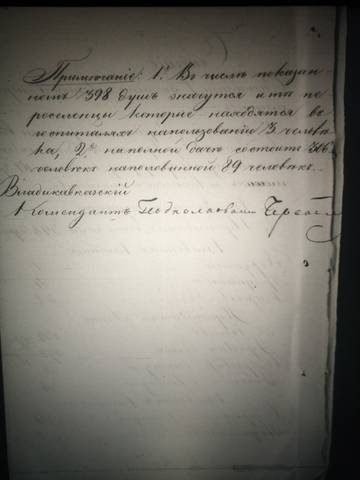 Примѣчаніе: 1е Въ числѣ показан-
ныхъ 398 душъ значутся и тѣ пе
реселенцы которые находятся въ
госпиталяхъ на пользованіи 3 челове
ка, 2е на полной дачѣ состоитъ 306
человѣкъ на половинной 89 человѣкъ.
Владикавказскій
Комендантъ Подполковникъ